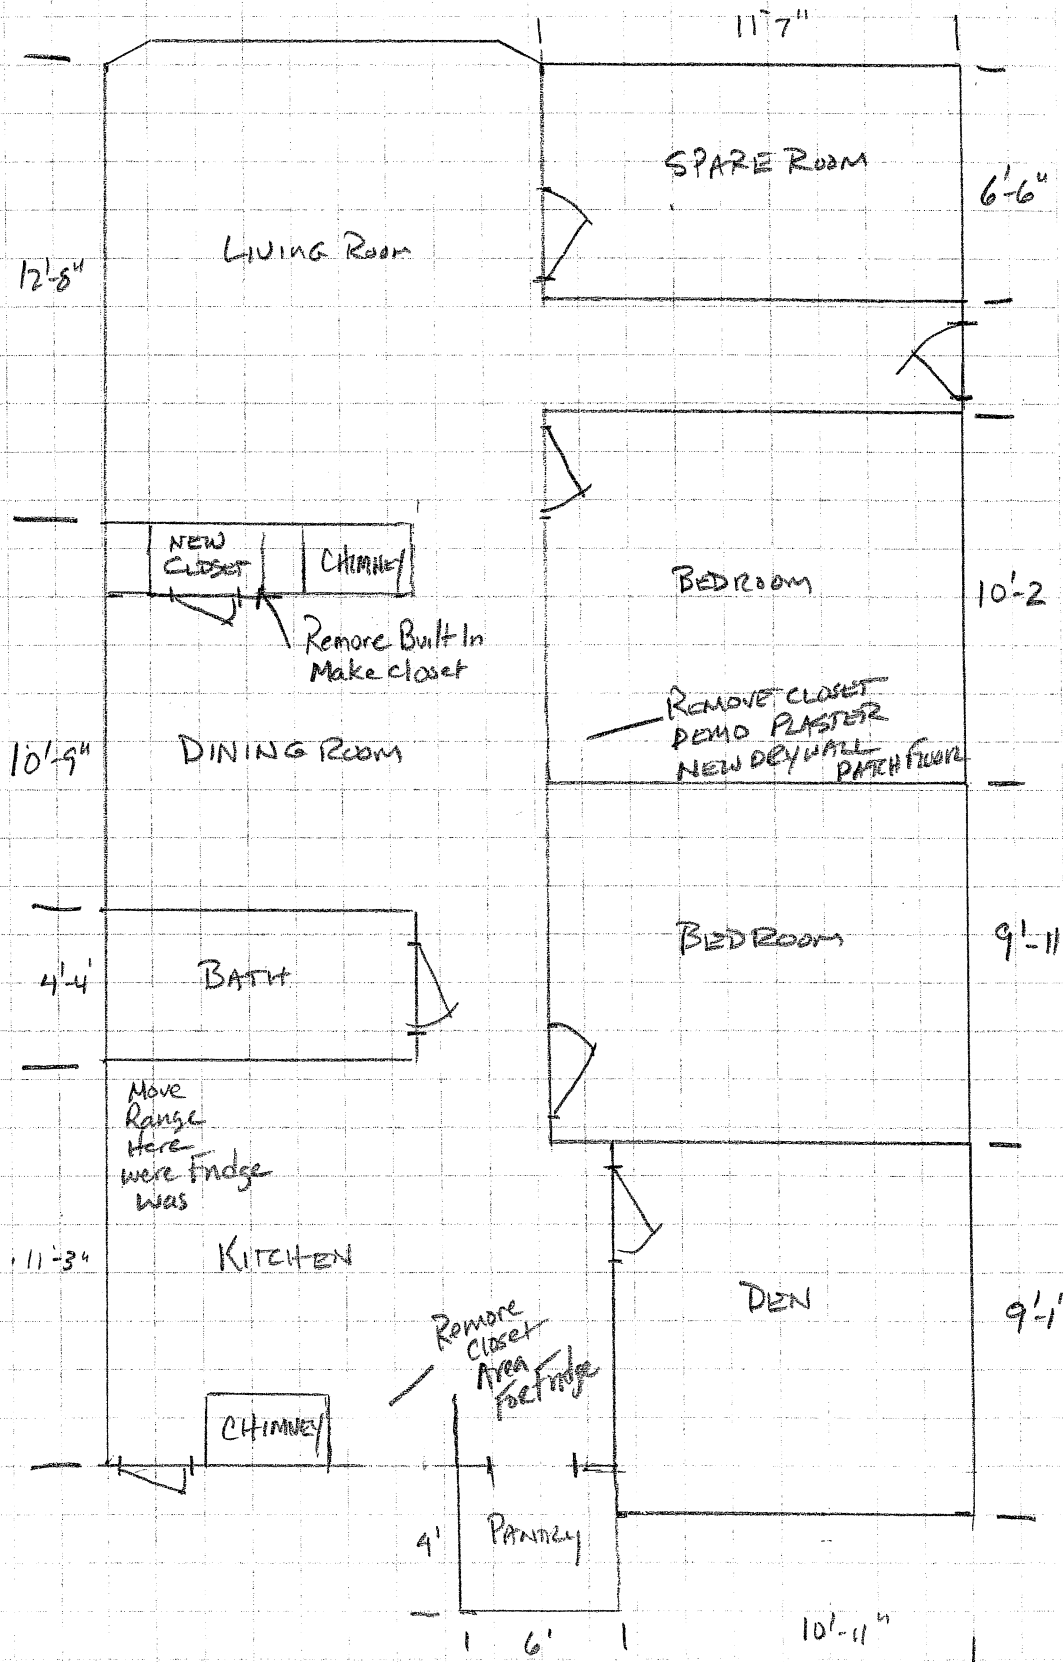 11'7"
SPARE ROOM
6'-6"
LIVING ROOM
12'-8"
NEW
CLOSET
CHIMNEY
BEDROOM
10'-2
Remove Built In
Make closet
REMOVE CLOSET
DEMO PLASTER
NEW DRYWALL
PATCH FLOOR
10'-9"
DINING ROOM
BEDROOM
9'-11
4'-4'
BATH
Move
Range
Here
were Fridge
was
11'-3"
KITCHEN
DEN
9'-1'
Remove
Closet
Area
For Fridge
CHIMNEY
4'
PANTRY
6'
10'-11"